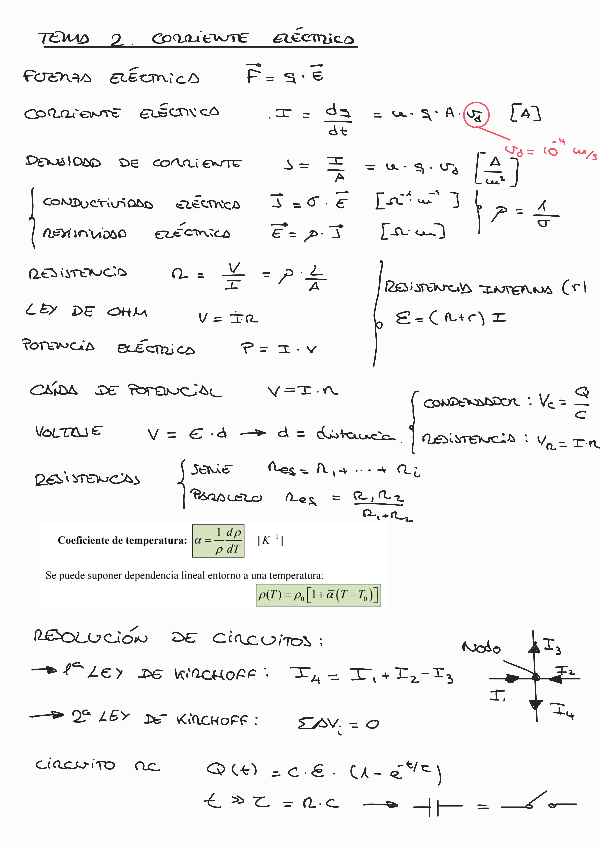 TEMA 2. CORRIENTE ELÉCTRICA
FUERZA ELÉCTRICA F⃗ = q · E⃗
CORRIENTE ELÉCTRICA . I = dq/dt = n · q · A · vd [A]
vd = 10⁻⁴ m/s
DENSIDAD DE CORRIENTE J = I/A = n · q · vd [A/m²]
CONDUCTIVIDAD ELÉCTRICA J⃗ = σ · E⃗ [Ω⁻¹ m⁻¹]
ρ = 1/σ
RESISTIVIDAD ELÉCTRICA E⃗ = ρ · J⃗ [Ω · m]
RESISTENCIA R = V/I = ρ · L/A
RESISTENCIA INTERNA (r)
LEY DE OHM V = IR
Ɛ = (R+r) I
POTENCIA ELÉCTRICA P = I · V
CAÍDA DE POTENCIAL V = I · R
CONDENSADOR : Vc = Q/C
VOLTAJE V = E · d → d = distancia.
RESISTENCIA : VR = I · R
RESISTENCIAS
SERIE Req = R1 + ... + Ri
PARALELO Req = R1R2/R1+R2
Coeficiente de temperatura: α = 1/ρ dρ/dT [K⁻¹]
Se puede suponer dependencia lineal entorno a una temperatura:
ρ(T) = ρ0 [1 + α̅ (T − T0)]
RESOLUCIÓN DE CIRCUITOS :
→ 1ª LEY DE KIRCHOFF : I4 = I1 + I2 − I3
Nodo
I3
I2
I1
I4
→ 2ª LEY DE KIRCHOFF : ΣΔVi = 0
CIRCUITO RC Q(t) = C · Ɛ · (1 − e^−t/τ)
t >> τ = R · C → =